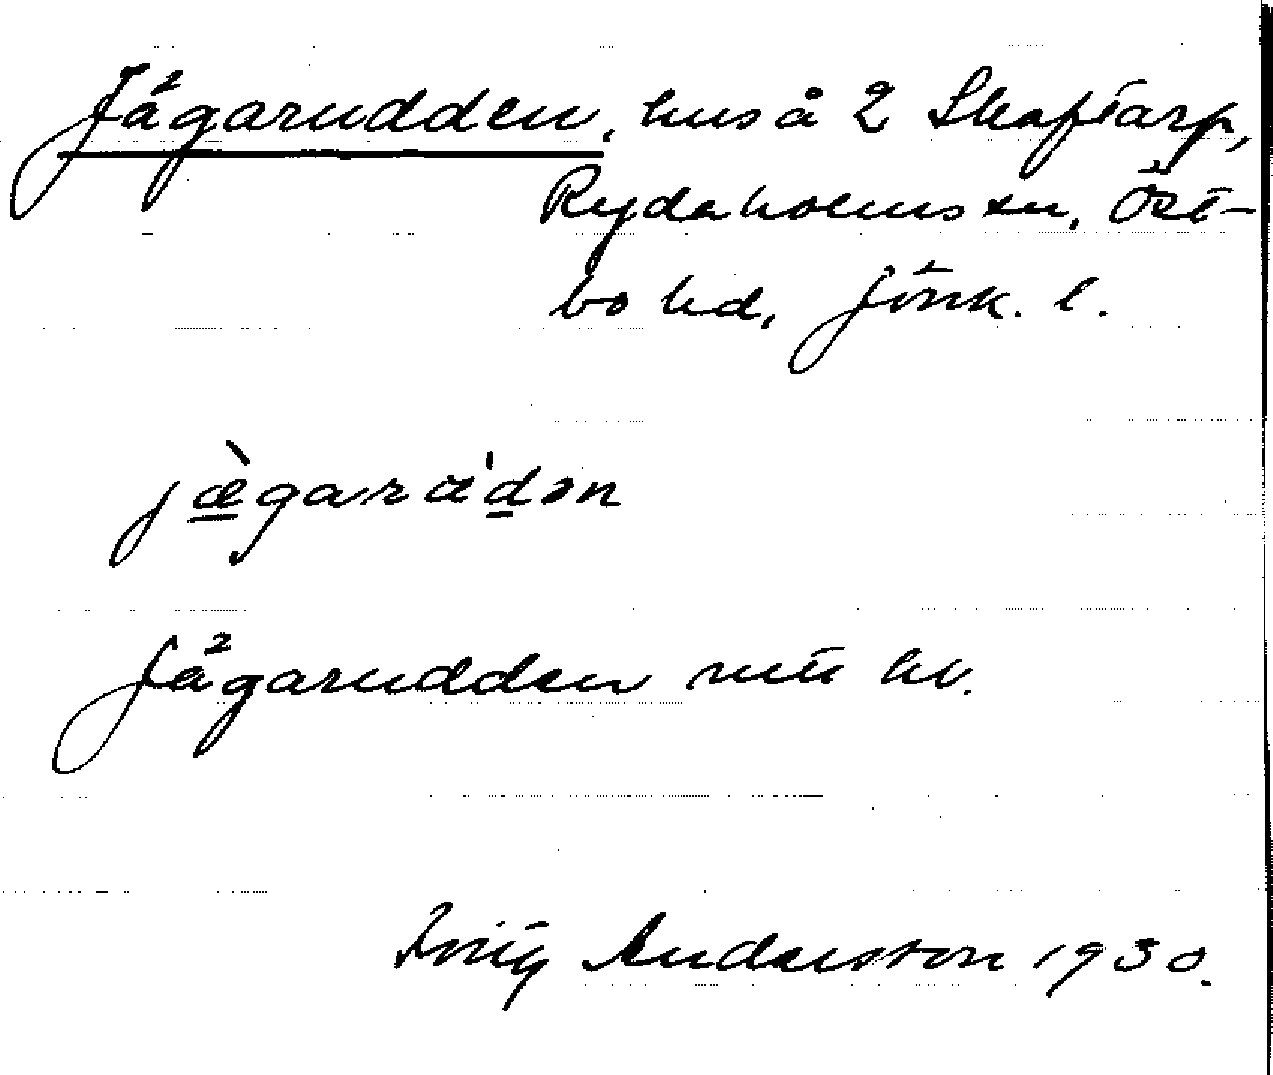 Jägarudden, hus å 2 Skaftarp,
Rydaholms sn, Öst-
bo hd, Jönk. l.
jæ̀garæ'dən
Jägarudden
Andersson 1930.